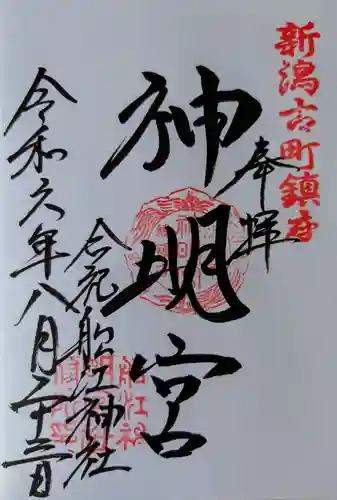 新潟古町鎮守
奉拝
神明宮
合祀船江神社
令和六年八月二十三日